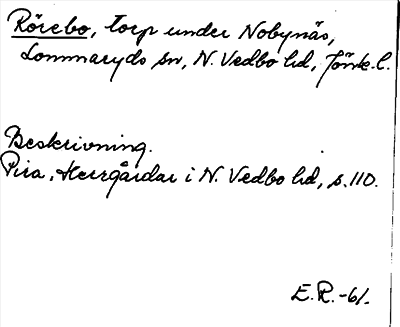 Rörebo, torp under Nobynäs,
Lommaryds sn, N. Vedbo hd, Jönk. l.
Beskrivning.
Pira, Herrgårdar i N. Vedbo hd, s. 110.
E. R. -61.